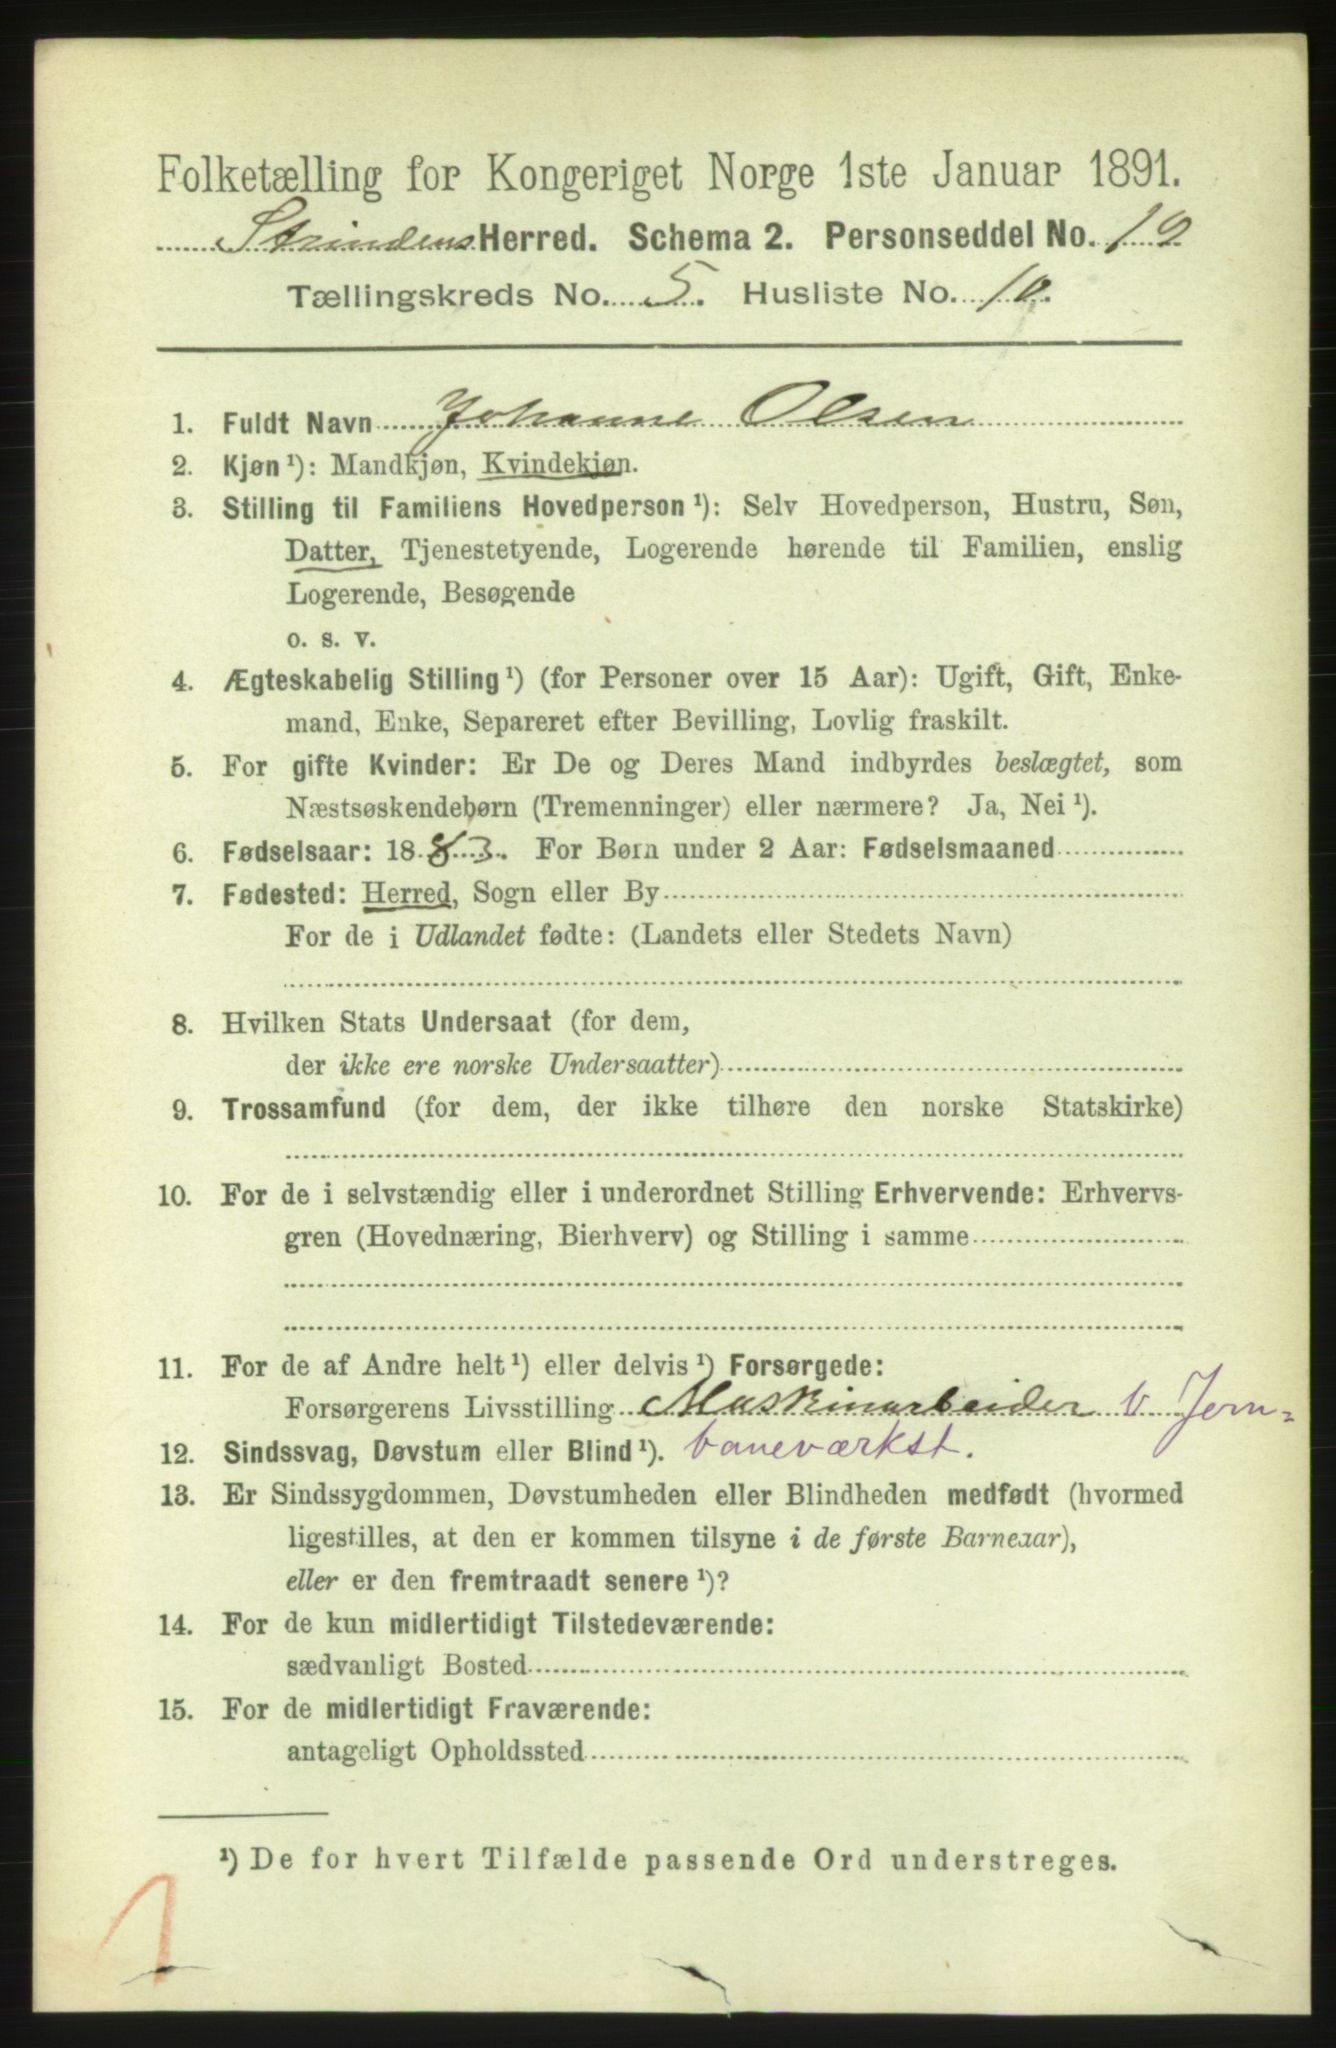 Folketælling for Kongeriget Norge 1ste Januar 1891.
Strindens Herred. Schema 2. Personseddel No. 19
Tællingskreds No. 5. Husliste No. 10.
1. Fuldt Navn Johanne Olsen
2. Kjøn ¹): Mandkjøn, Kvindekjøn.
3. Stilling til Familiens Hovedperson ¹): Selv Hovedperson, Hustru, Søn,
Datter, Tjenestetyende, Logerende hørende til Familien, enslig
Logerende, Besøgende
o. s. v.
4. Ægteskabelig Stilling ¹) (for Personer over 15 Aar): Ugift, Gift, Enke-
mand, Enke, Separeret efter Bevilling, Lovlig fraskilt.
5. For gifte Kvinder: Er De og Deres Mand indbyrdes beslægtet, som
Næstsøskendebørn (Tremenninger) eller nærmere? Ja, Nei ¹).
6. Fødselsaar: 1883. For Børn under 2 Aar: Fødselsmaaned
7. Fødested: Herred, Sogn eller By
For de i Udlandet fødte: (Landets eller Stedets Navn)
8. Hvilken Stats Undersaat (for dem,
der ikke ere norske Undersaatter)
9. Trossamfund (for dem, der ikke tilhøre den norske Statskirke)
10. For de i selvstændig eller i underordnet Stilling Erhvervende: Erhvervs-
gren (Hovednæring, Bierhverv) og Stilling i samme
11. For de af Andre helt ¹) eller delvis ¹) Forsørgede:
Forsørgerens Livsstilling Maskinarbeider v Jern=
12. Sindssvag, Døvstum eller Blind ¹). baneværkst.
13. Er Sindssygdommen, Døvstumheden eller Blindheden medfødt (hvormed
ligestilles, at den er kommen tilsyne i de første Barneaar),
eller er den fremtraadt senere ¹)?
14. For de kun midlertidigt Tilstedeværende:
sædvanligt Bosted
15. For de midlertidigt Fraværende:
antageligt Opholdssted
¹) De for hvert Tilfælde passende Ord understreges.
1